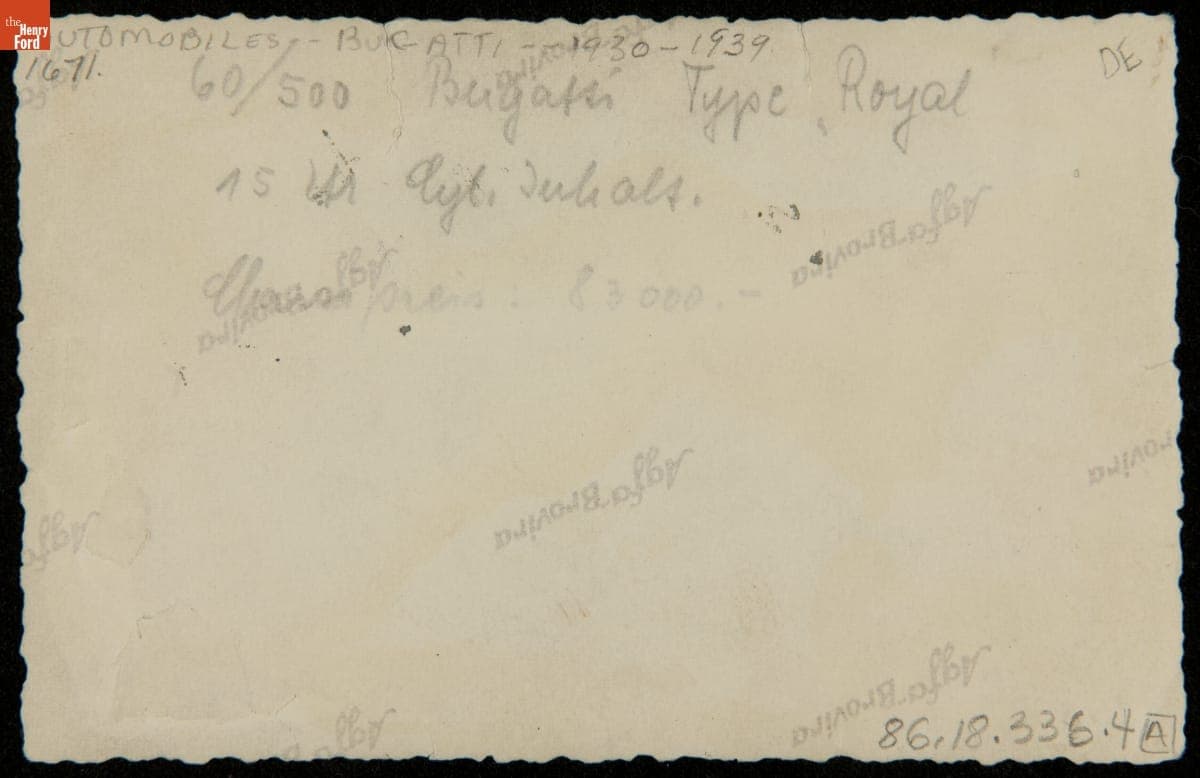 the Henry Ford
AUTOMOBILES - BUGATTI - 1930-1939
1671.
DE
60/500 Bugatti Type Royal
15 Ltr Cyl. Inhalt.
Chassispreis: 83000.-
Agfa Brovira
Agfa Brovira
Agfa Brovira
rovira
Agfa
Agfa Brovira
Agfa
86.18.336.4 A